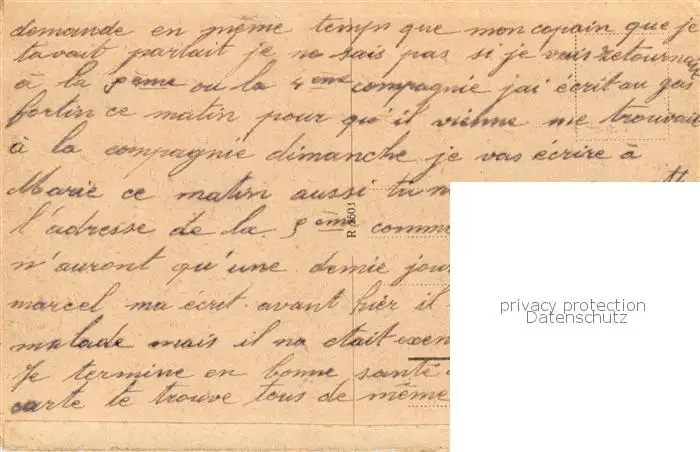 demande en même temps que mon copain que je
tavait parlait je ne sais pas si je vais retournait
à la 5ème ou la 4ème compagnie jai écrit au gas
fortin ce matin pour qu'il vienne me trouvait
à la compagnie dimanche je vas écrire à
Marie ce matin aussi tu
l'adresse de la 5ème comme
n'auront qu'une demie jour
marcel ma écret avant hier il
malade mais il na était exen
Je termine en bonne santé
carte te trouve tous de même
R 3603
privacy protection
Datenschutz